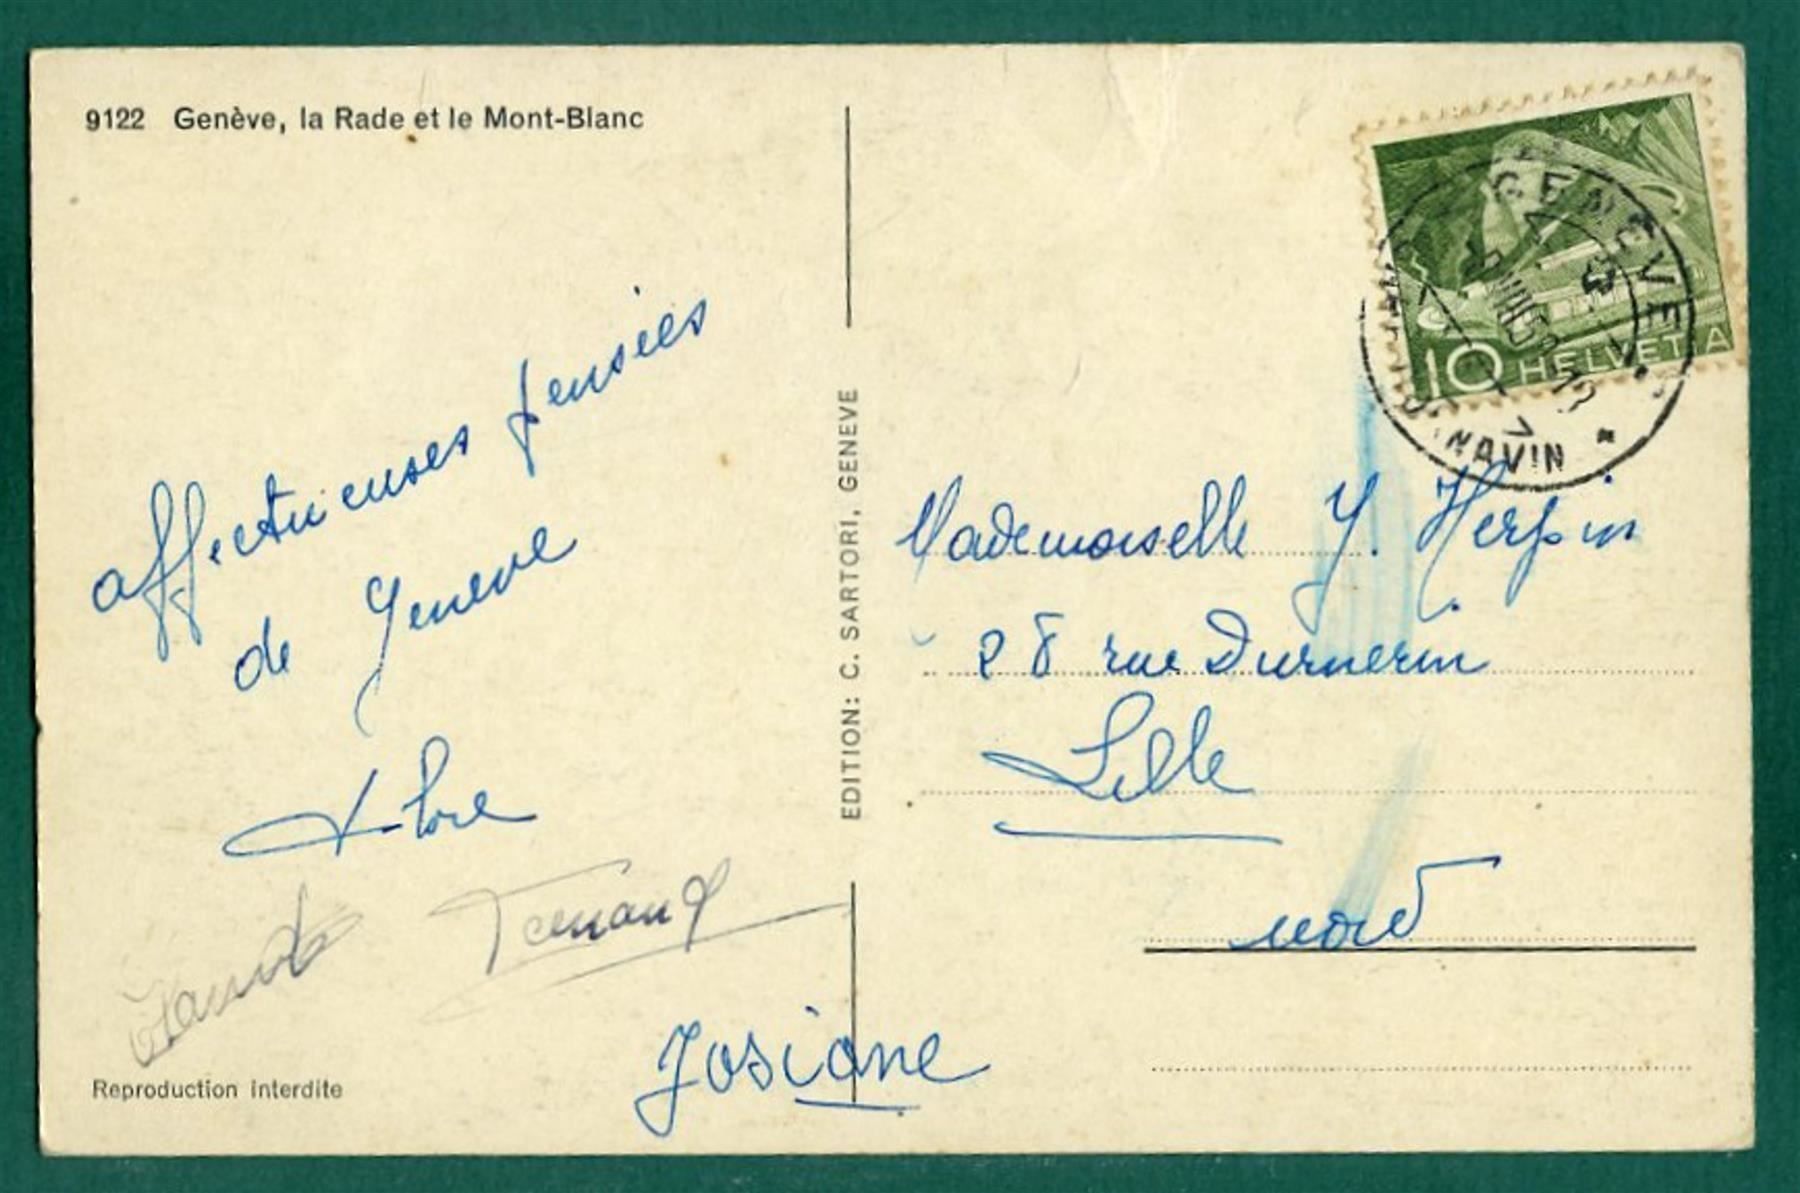 9122 Genève, la Rade et le Mont-Blanc
affectueuses pensées
de Geneve
Fernand
Josiane
Reproduction interdite
EDITION: C. SARTORI, GENEVE
10 HELVETIA
GENEVE
NAVIN
Mademoiselle Y. Herpin
28 rue Durnerin
Lille
nord